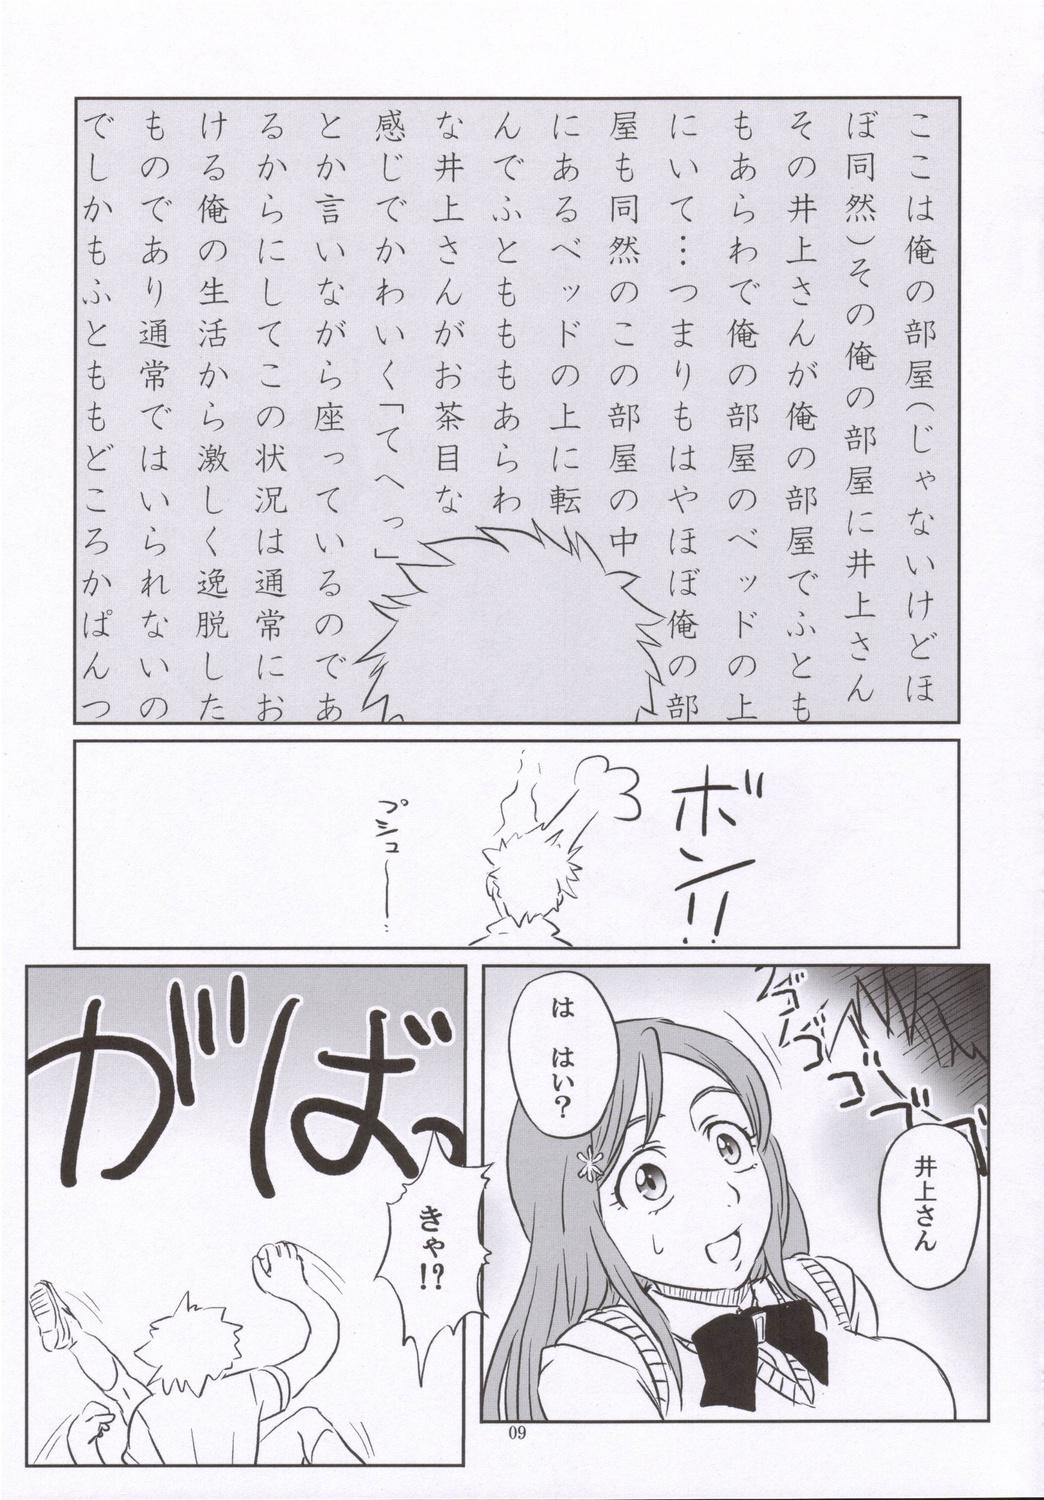 ここは俺の部屋(じゃないけどほ
ぼ同然)その俺の部屋に井上さん
その井上さんが俺の部屋でふとも
もあらわで俺の部屋のベッドの上
にいて…つまりもはやほぼ俺の部
屋も同然のこの部屋の中
にあるベッドの上に転
んでふとももあらわ
な井上さんがお茶目な
感じでかわいく「てへっ」
とか言いながら座っているのであ
るからにしてこの状況は通常にお
ける俺の生活から激しく逸脱した
ものであり通常ではいられないの
でしかもふとももどころかぱんつ
ボン!!
プシュー
ズズズズズ
井上さん
は はい?
がばっ
きゃ!?
09